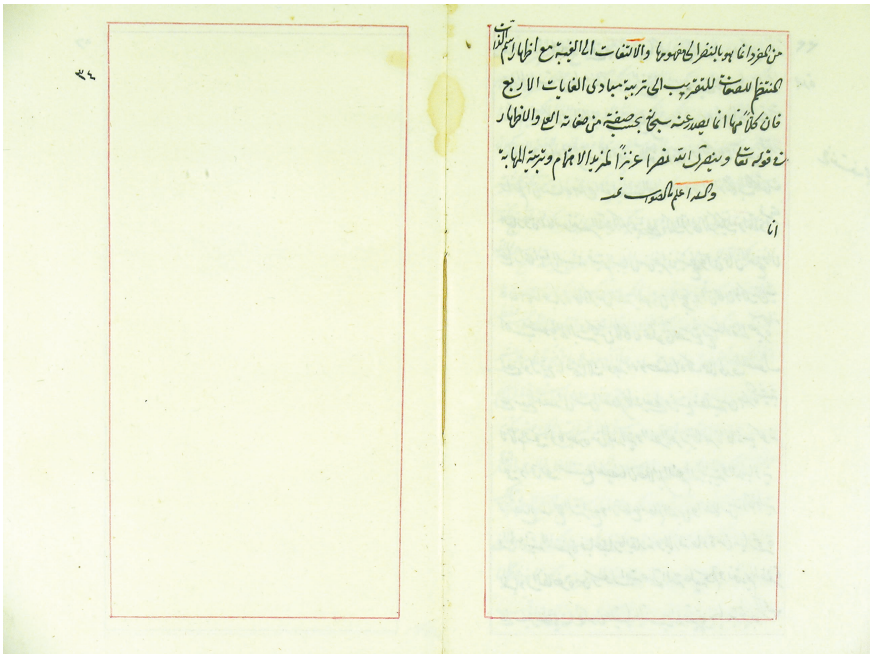 من المفرد انما هو بالنظر الى مفهومها والالتفات الى الغيبة مع اظهار اسم الذات
المنتظم للصفات للتقريب الى تربية مبادى الغايات الاربع
فان كلا منها انما يصدر عنه سبحانه بحسب صفة من صفاته العلى والاظهار
فى قوله تعالى وينصرك الله نصرا عزيزا لمزيد الاهتمام وتربية المهابة
والله اعلم بالصواب
انا
٣٤